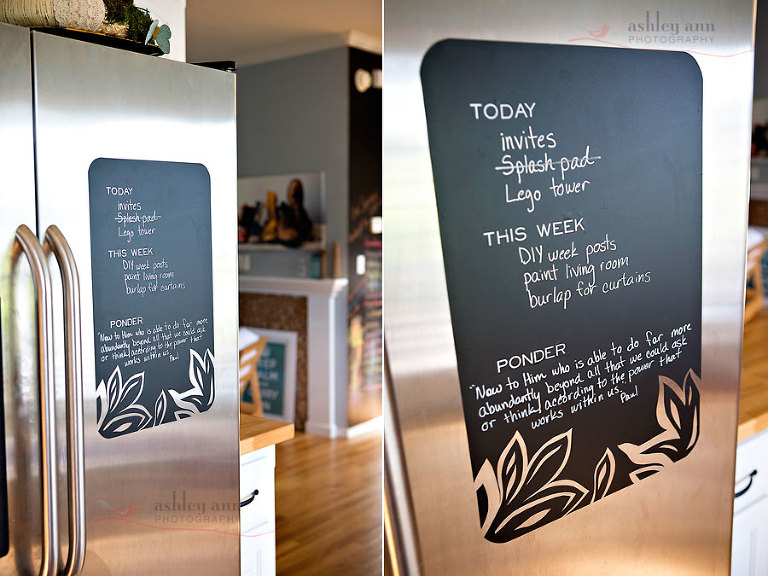 TODAY
invites
Splash pad
Lego tower
THIS WEEK
DIY week posts
paint living room
burlap for curtains
PONDER
"Now to Him who is able to do far more
abundantly beyond all that we could ask
or think, according to the power that
works within us."
Paul
ashley ann
PHOTOGRAPHY
ashley ann
PHOTOGRAPHY
TODAY
invites
Splash pad
Lego tower
THIS WEEK
DIY week posts
paint living room
burlap for curtains
PONDER
"Now to Him who is able to do far more
abundantly beyond all that we could ask
or think, according to the power that
works within us."
Paul